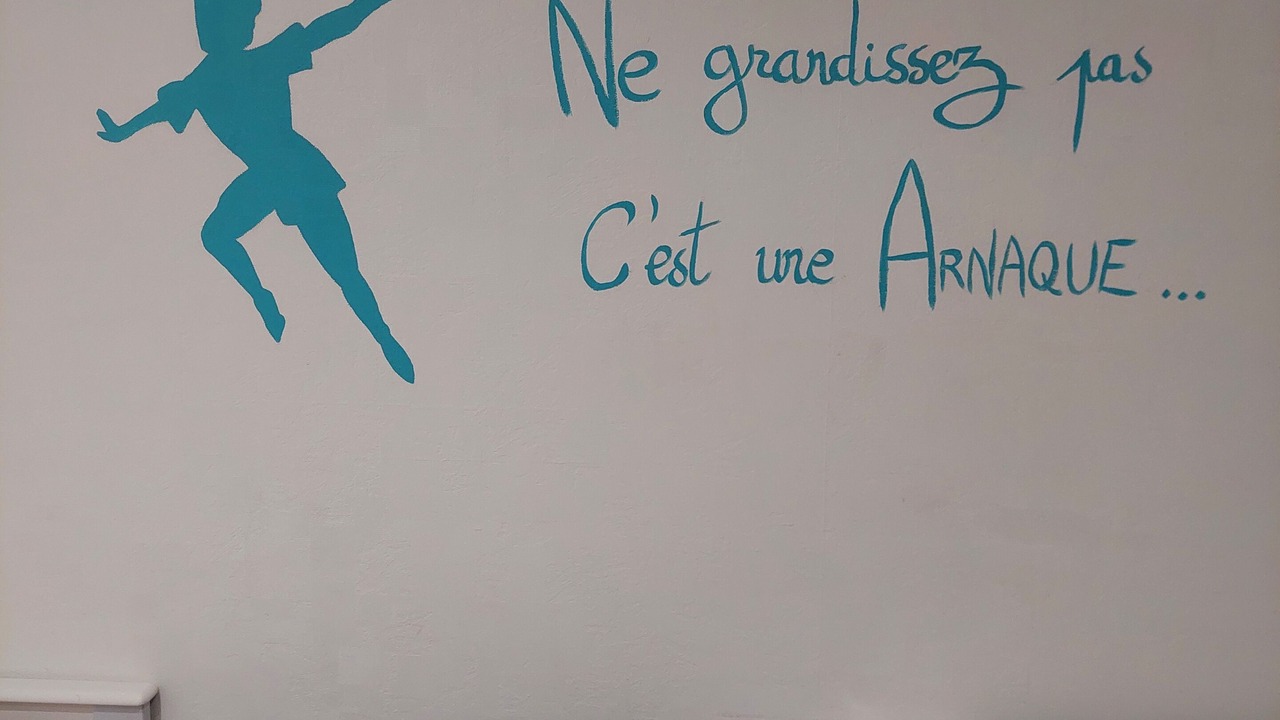 Ne grandissez pas
C'est une ARNAQUE...